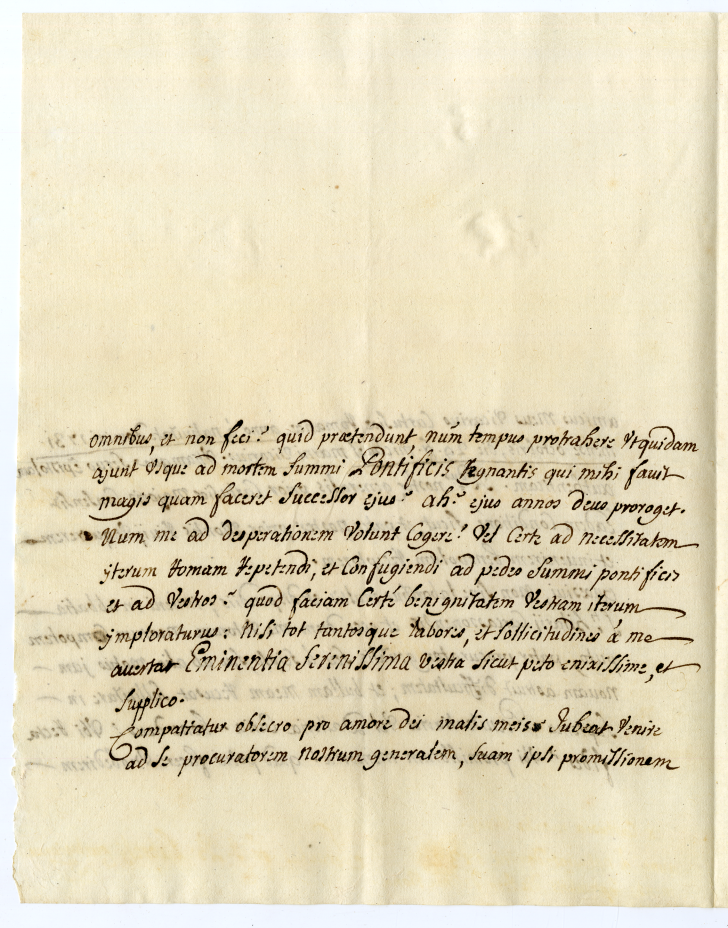 omnibus, et non feci? quid prætendunt num tempus protrahere Vt quidam
ajunt Vsque ad mortem Summi Pontificis Regnantis qui mihi favit
magis quam faceret Successor ejus? ah? ejus annos deus proroget.
Num me ad desperationem Volunt Cogere? Vel Certe ad necessitatem
jterum Romam Repetendi, et Confugiendi ad pedes Summi pontificis
et ad Vestros? quod faciam Certé benignitatem Vestram iterum
jmploraturus: Nisi tot tantosque labores, et sollicitudines á me
avertat Eminentia Serenissima Vestra Sicut peto enixissime, et
Supplico.
Compatiatur obsecro pro amore dei malis meis Jubeat Venire
ad Se procuratorem Nostrum generalem, Suam ipsi promissionem